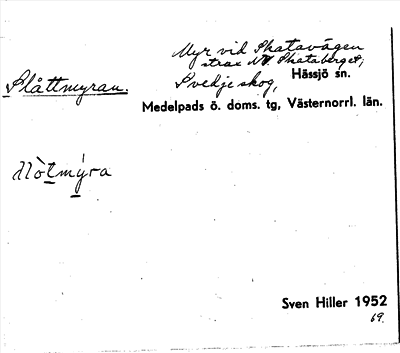 Myr vid Skatavägen
strax NV. Skataberget,
Slåttmyran.
Svedje skog, Hässjö sn.
Medelpads ö. doms. tg, Västernorrl. län.
Sven Hiller 1952
69.